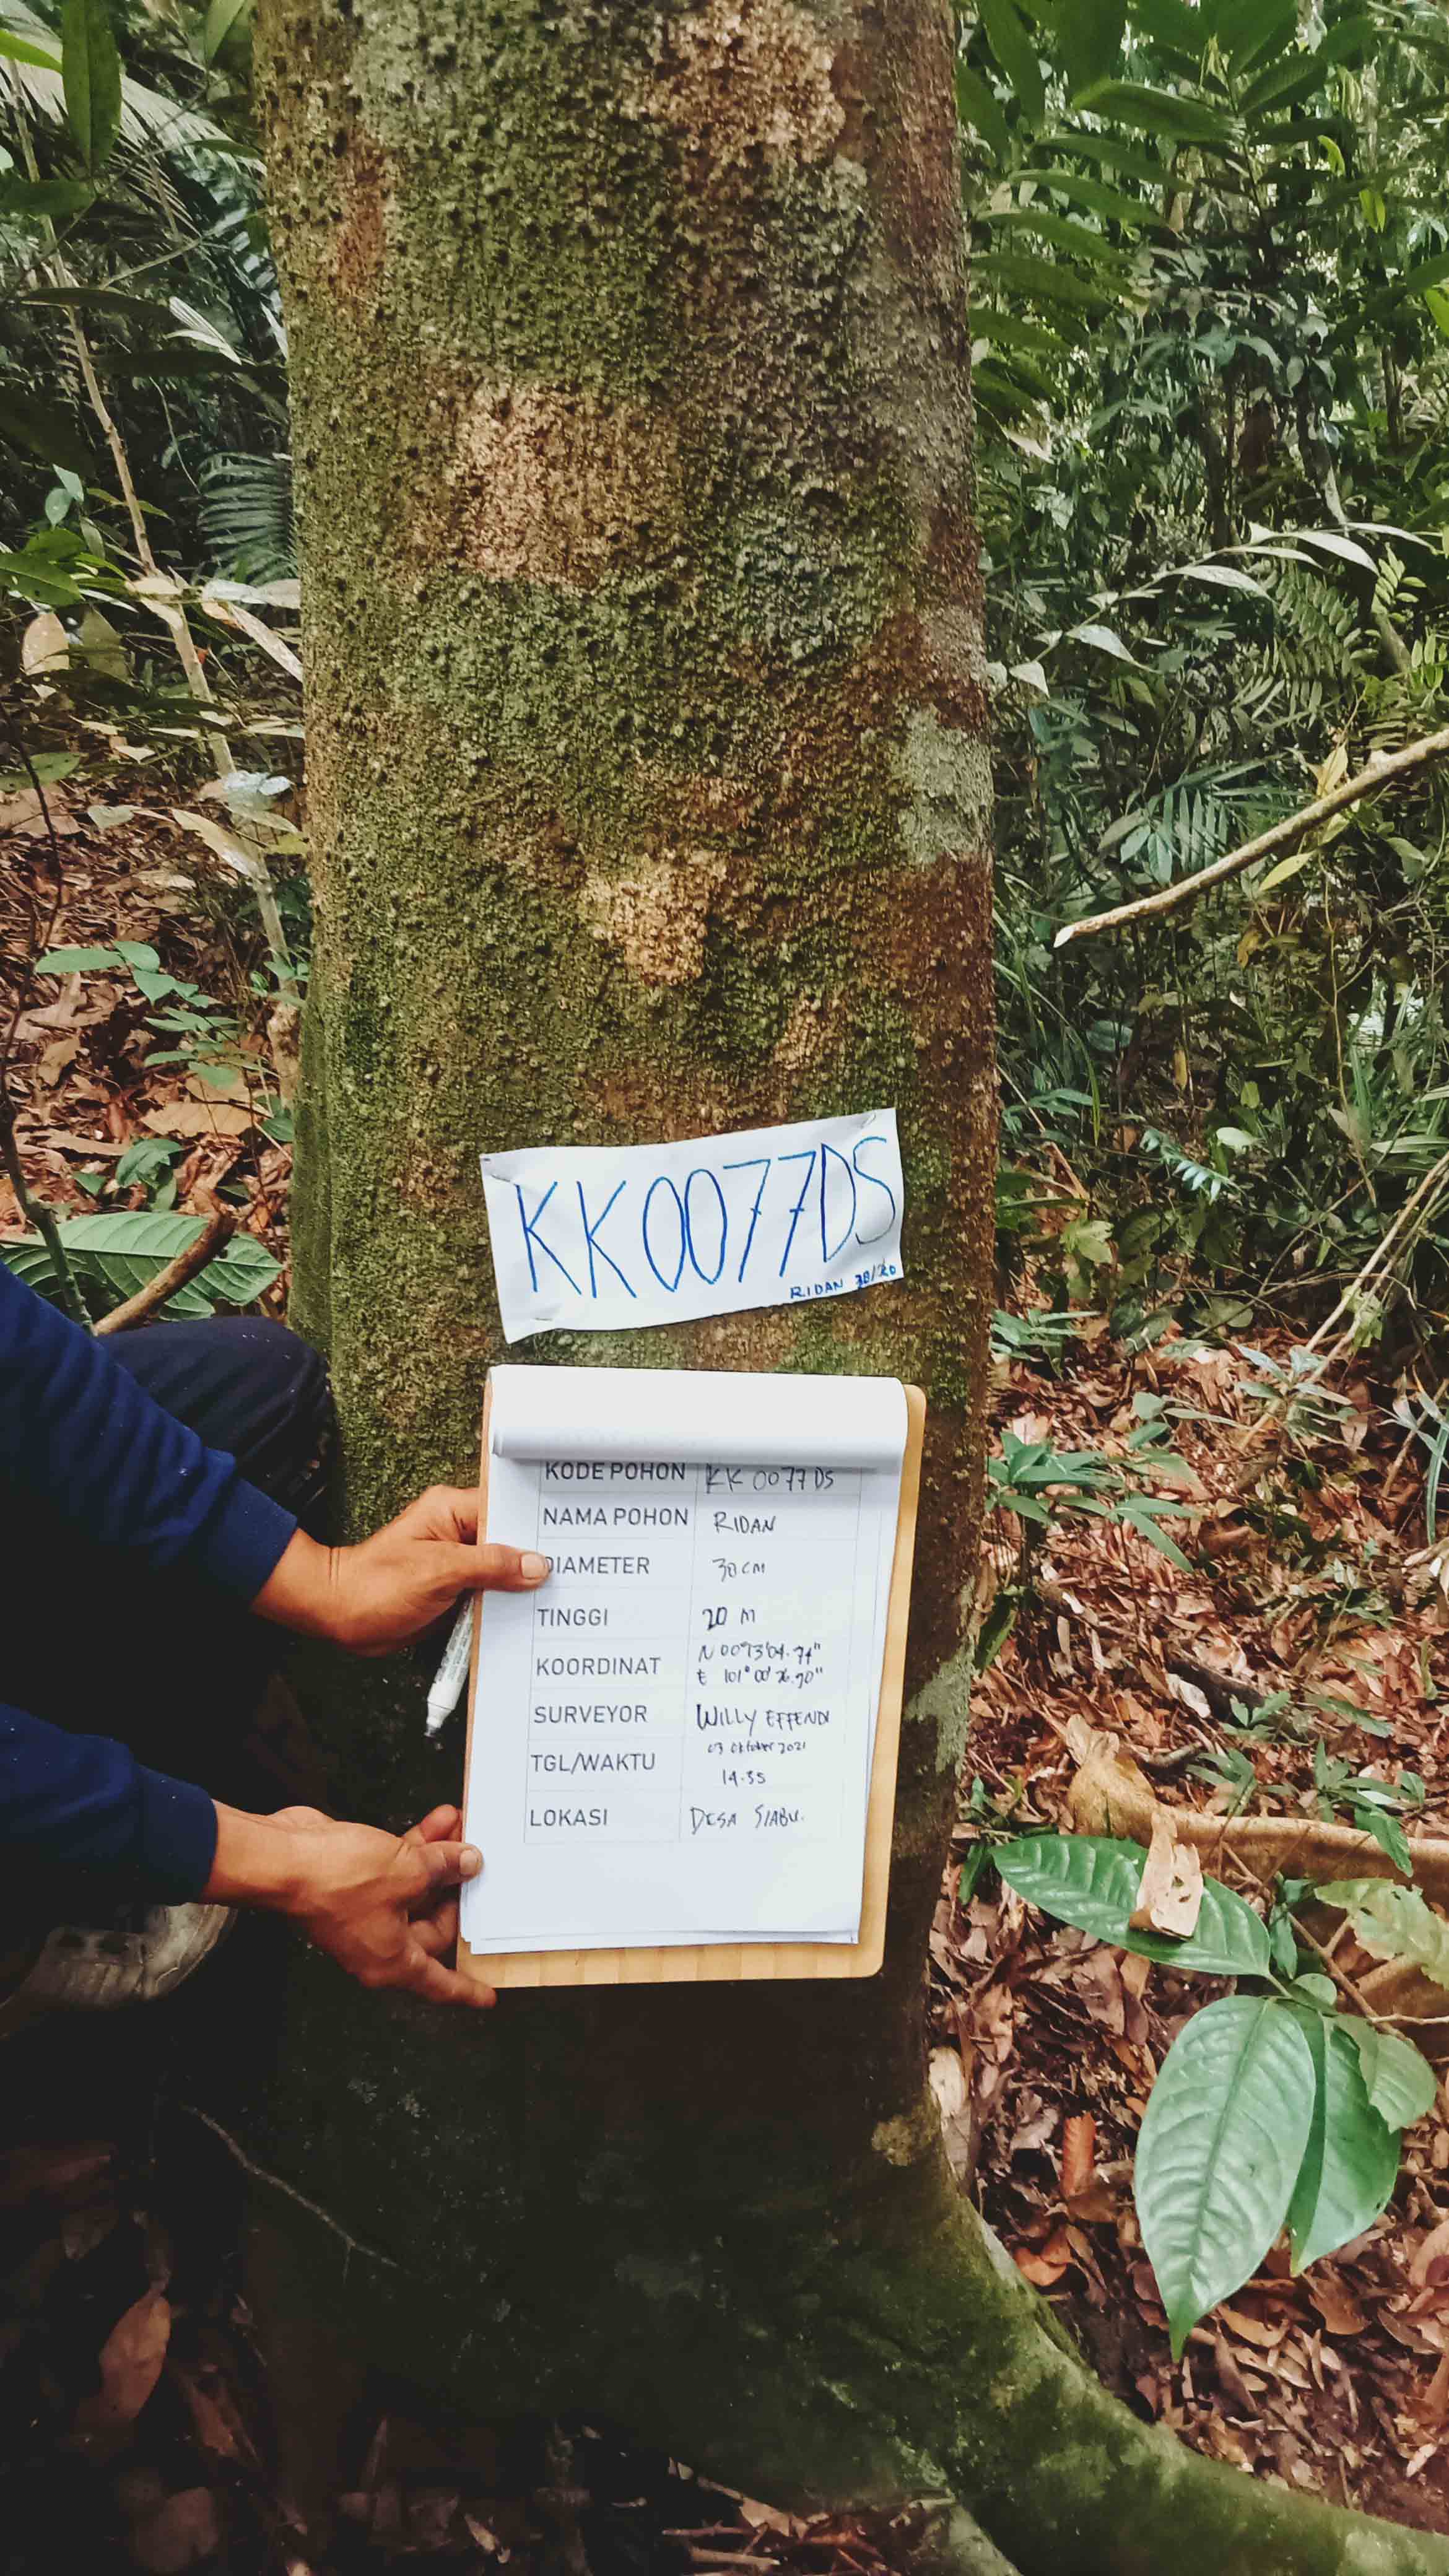 KK0077DS
RIDAN 38/20
KODE POHON KK 0077 DS
NAMA POHON RIDAN
DIAMETER 38 CM
TINGGI 20 M
KOORDINAT
E 101° 00' 26.90"
SURVEYOR WILLY EFFENDI
03 Oktober 2021
TGL/WAKTU 14.35
LOKASI DESA SIABU.